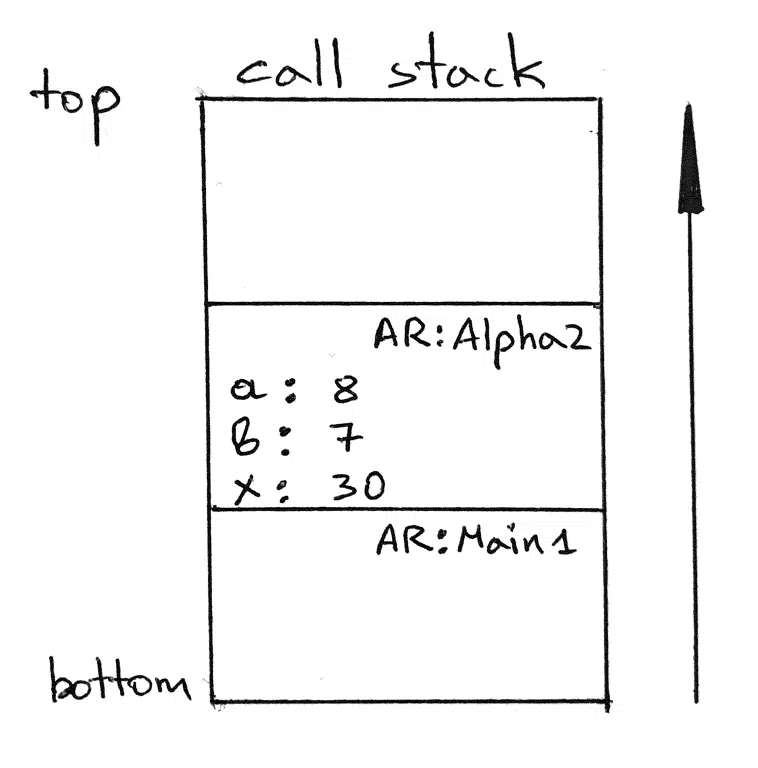 call stack
top
AR:Alpha2
a: 8
b: 7
x: 30
AR:Main1
bottom